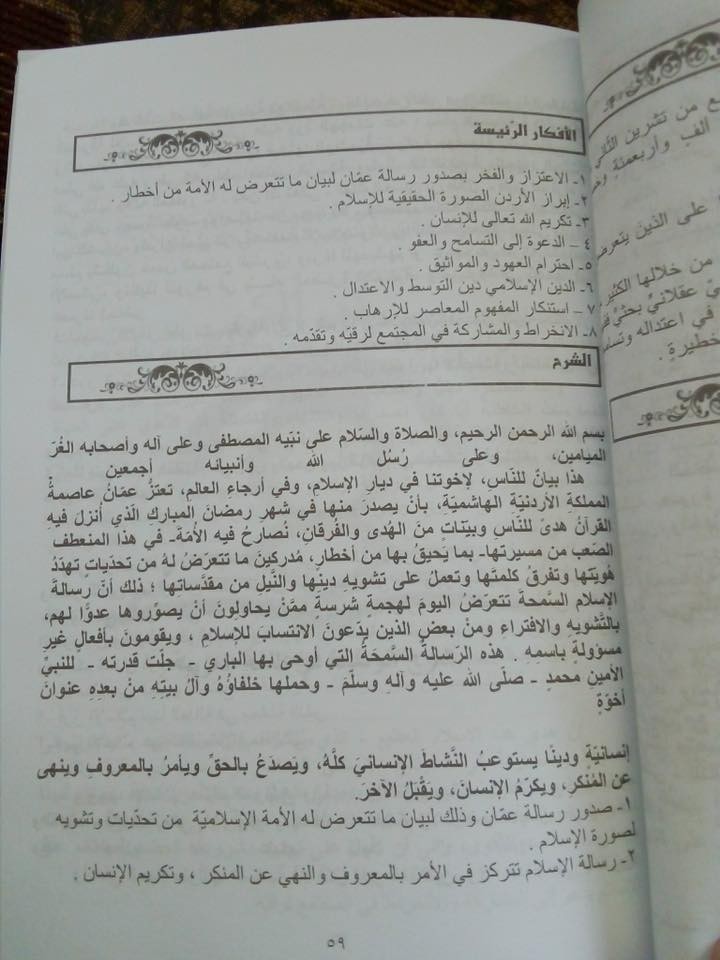 الأفكار الرّئيسة
١- الاعتزاز والفخر بصدور رسالة عمّان لبيان ما تتعرض له الأمة من أخطار .
٢- إبراز الأردن الصورة الحقيقية للإسلام .
٣- تكريم الله تعالى للإنسان.
٤ – الدعوة إلى التسامح والعفو .
٥- احترام العهود والمواثيق .
٦- الدين الإسلامي دين التوسط والاعتدال .
٧ – استنكار المفهوم المعاصر للإرهاب.
٨- الانخراط والمشاركة في المجتمع لرقيّه وتقدّمه .
الشرح
بسم الله الرحمن الرحيم، والصلاة والسّلام على نبيّه المصطفى وعلى آله وأصحابه الغُرّ
الميامين، وعلى رُسُل الله وأنبيائه أجمعين
هذا بيانٌ للنّاس، لإخوتنا في ديارِ الإسلامِ، وفي أرجاءِ العالم، تعتزُّ عمّانُ عاصمةُ
المملكةِ الأردنيّة الهاشميّة، بأنْ يصدرَ منها في شهرِ رمضانَ المباركِ الّذي أُنزلَ فيه
القرآنُ هدىً للنّاسِ وبيّناتٍ منَ الهُدى والفُرقانِ، نُصارحُ فيه الأمّةَ- في هذا المنعطف
الصّعبِ من مسيرتها- بما يَحيقُ بها من أخطارٍ، مُدركينَ ما تتعرّضُ لهُ من تحدّياتٍ تهدّدُ
هُويّتها وتفرقُ كلمتها وتعملُ على تشويهِ دينِها والنَّيلِ من مقدّساتِها ؛ ذلك أنّ رسالةَ
الإسلام السّمحةَ تتعرّضُ اليومَ لهجمةٍ شرسةٍ ممّنْ يحاولونَ أنْ يصوّروها عدوًّا لهم،
بالتّشويهِ والافتراءِ ومنْ بعض الذين يدّعونَ الانتسابَ للإسلام ، ويقومونَ بأفعالٍ غيرِ
مسؤولةٍ باسمِهِ . هذه الرّسالةُ السّمحَةُ التي أوحى بها الباري - جلّت قدرته - للنبيِّ
الأمينِ محمدٍ – صلّى الله عليه وآلهِ وسلّمَ - وحملها خلفاؤُهُ وآلُ بيتِهِ منْ بعدِهِ عنوانَ
أخوّةٍ
إنسانيّةٍ ودينًا يستوعبُ النَّشاطَ الإنسانيَّ كلَّهُ، ويَصدَعُ بالحقِّ ويأمرُ بالمعروفِ وينهى
عن المُنكرِ، ويكرّمُ الإنسانَ، ويَقْبَلُ الآخرَ.
١- صدور رسالة عمّان وذلك لبيان ما تتعرض له الأمة الإسلاميّة من تحدّيات وتشويه
لصورة الإسلام .
٢- رسالة الإسلام تتركز في الأمر بالمعروف والنهي عن المنكر ، وتكريم الإنسان .
٥٩
ع من تشرين الثّاني
ألف وأربعمئةٍ
على الذين يتعرض
من خلالها الكثير
يّ عقلانيٌّ بحثيٌّ
في اعتداله
خطيرةٍ .